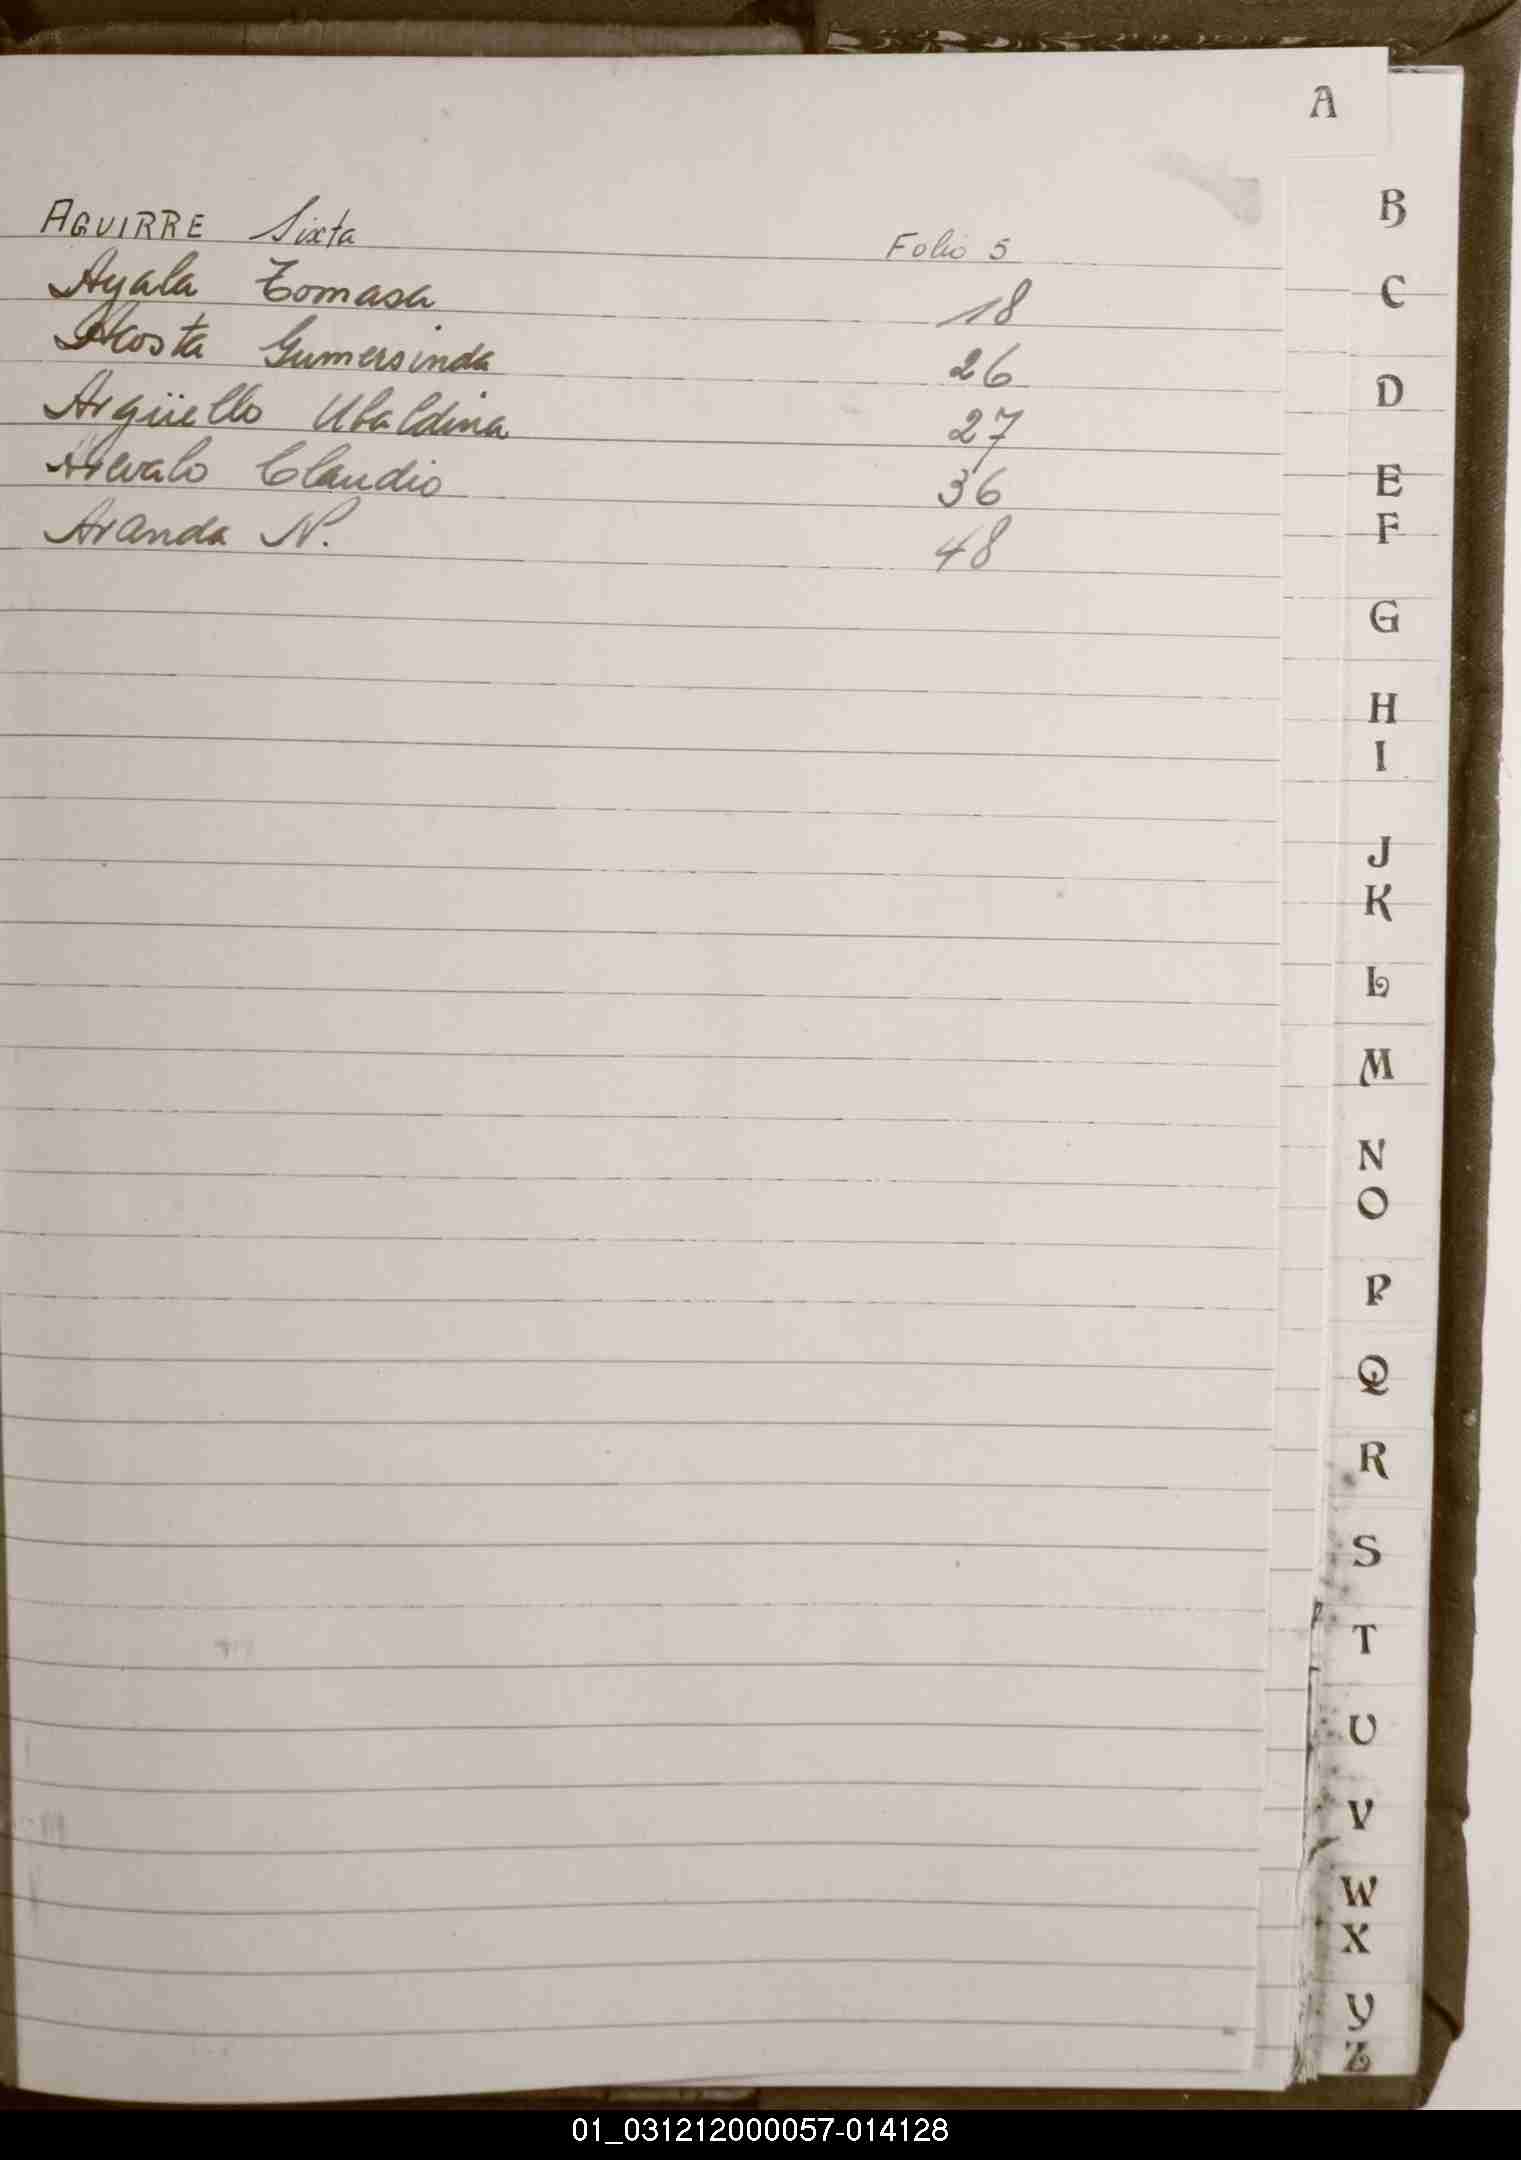 A
AGUIRRE Sixta Folio 5
Ayala Tomasa 18
Acosta Gumersinda 26
Argüello Ubaldina 27
Arevalo Claudio 36
Aranda N. 48
B
C
D
E
F
G
H
I
J
K
L
M
N
O
P
Q
R
S
T
U
V
W
X
Y
Z
01_031212000057-014128